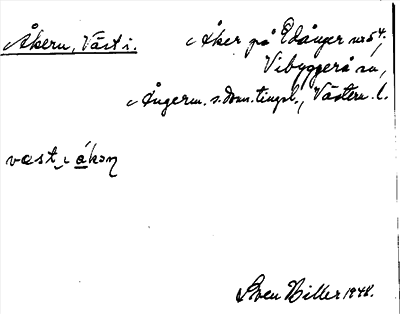 Åkern, Väst i.
Åker på Edånger nr 54,
Vibyggerå sn,
Ångerm. s. dom. tingsl., Västern. l.
väst i åkən
Sven Hiller 1948.